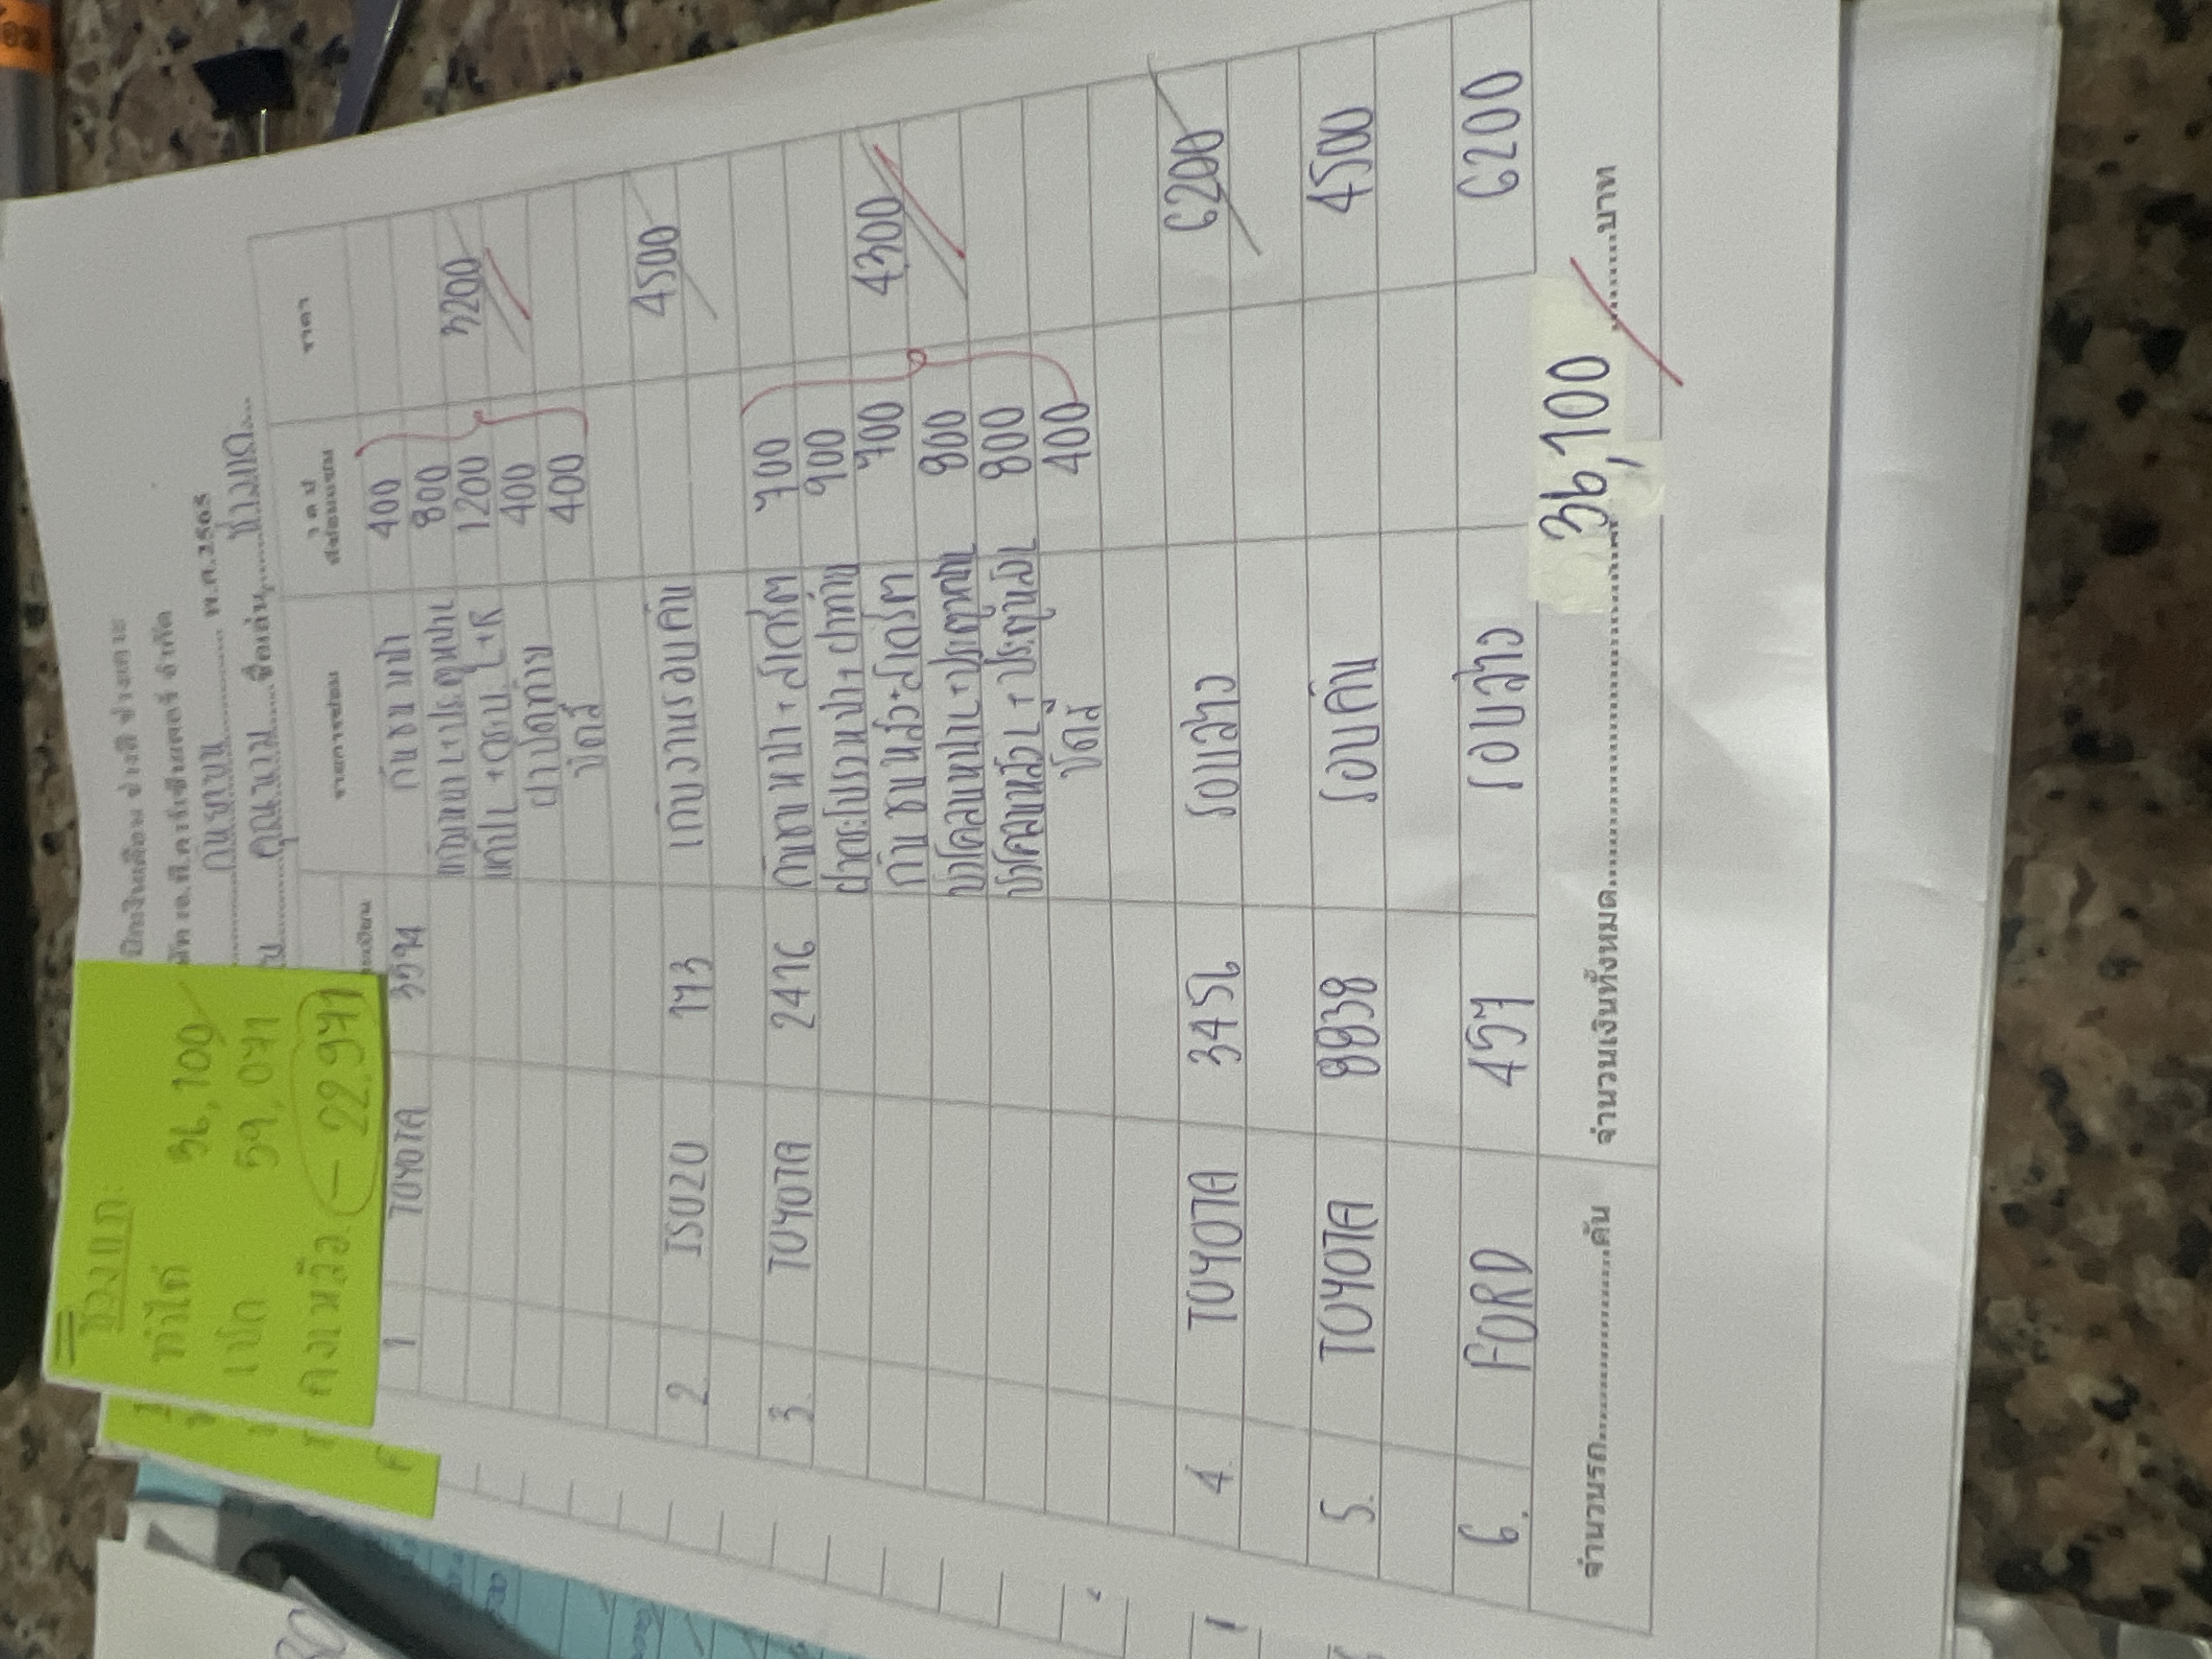 ช่างแก:
ทำได้ 36,100
เบิก 59,071
คงเหลือ (- 22,971)
เบิกเงินเดือน ช่างสี ช่างเคาะ
กันยายน พ.ศ.2565
คุณนาม ชื่อเล่น ช่างแก
รายการซ่อม ราคา
1 TOYOTA 3594 กันชนหน้า 400
แก้มหน้า L+ประตูหน้า L 800
แก้ป L +ตูระบ L+R 1200 3200
ฝาปิดท้าย 400
ขัดสี 400
2. ISUZU 173 เก็บงานรอบคัน 4500
3. TOYOTA 2476 กันชนหน้า+สเกิร์ต 700
ฝากระโปรงหน้า+ฝาท้าย 900
กันชนหลัง+สเกิร์ต 700 4300
บังโคลนหน้าL+ประตูหน้าL 800
บังโคลนหลังL+ประตูหลังL 800
ขัดสี 400
4. TOYOTA 3456 รอบล่าง 6200
5. TOYOTA 8838 รอบคัน 4500
6. FORD 457 รอบล่าง 6200
จำนวนรถ....................คัน จำนวนเงินทั้งหมด.................... 36,100 ..........บาท